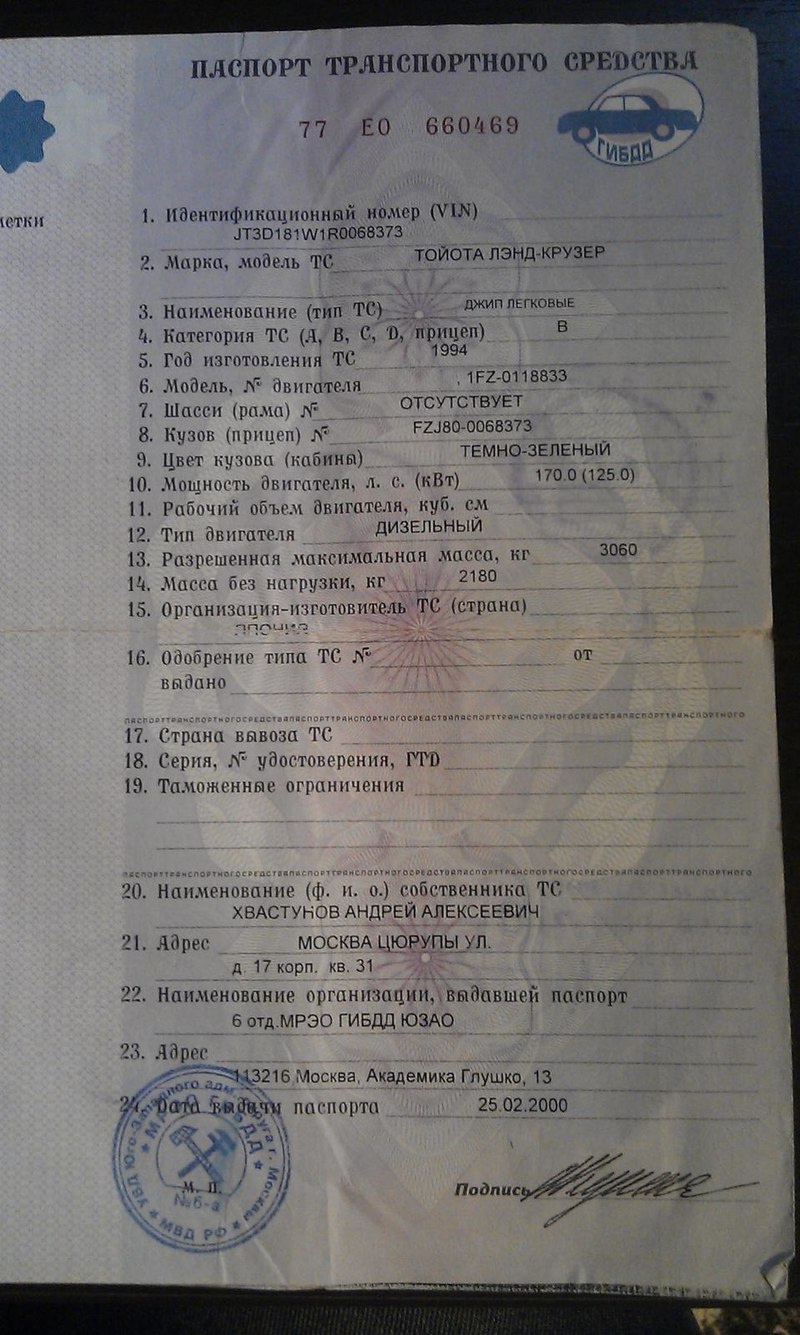 ПАСПОРТ ТРАНСПОРТНОГО СРЕДСТВА
77 ЕО 660469
ГИБДД
метки
1. Идентификационный номер (VIN)
JT3D181W1R0068373
2. Марка, модель ТС ТОЙОТА ЛЭНД-КРУЗЕР
3. Наименование (тип ТС) ДЖИП ЛЕГКОВЫЕ
4. Категория ТС (А, В, С, D, прицеп) В
5. Год изготовления ТС 1994
6. Модель, № двигателя , 1FZ-0118833
7. Шасси (рама) № ОТСУТСТВУЕТ
8. Кузов (прицеп) № FZJ80-0068373
9. Цвет кузова (кабины) ТЕМНО-ЗЕЛЕНЫЙ
10. Мощность двигателя, л. с. (кВт) 170.0 (125.0)
11. Рабочий объем двигателя, куб. см
12. Тип двигателя ДИЗЕЛЬНЫЙ
13. Разрешенная максимальная масса, кг 3060
14. Масса без нагрузки, кг 2180
15. Организация-изготовитель ТС (страна)
ЯПОНИЯ
16. Одобрение типа ТС № от
выдано
17. Страна вывоза ТС
18. Серия, № удостоверения, ГТD
19. Таможенные ограничения
20. Наименование (ф. и. о.) собственника ТС
ХВАСТУНОВ АНДРЕЙ АЛЕКСЕЕВИЧ
21. Адрес МОСКВА ЦЮРУПЫ УЛ.
д. 17 корп. кв. 31
22. Наименование организации, выдавшей паспорт
6 отд.МРЭО ГИБДД ЮЗАО
23. Адрес
113216 Москва, Академика Глушко, 13
24. Дата выдачи паспорта 25.02.2000
М. П.
Подпись
МВД РФ